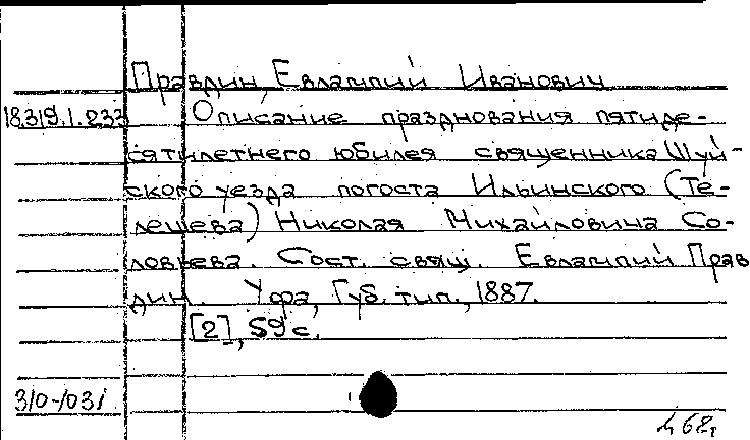 Правдин, Евлампий Иванович
18.319.1.233 Описание празднования пятиде-
сятилетнего юбилея священника Шуй-
ского уезда погоста Ильинского (Те-
лешева) Николая Михайловича Со-
ловьева. Сост. свящ. Евлампий Прав
дин. Уфа, Губ. тип., 1887.
[2], 59 с.
310-/031